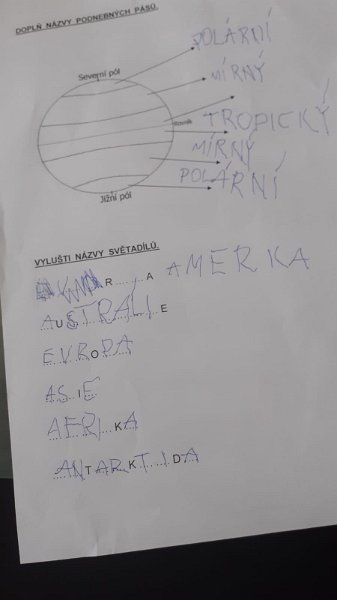 DOPLŇ NÁZVY PODNEBNÝCH PÁSŮ.
POLÁRNÍ
Severní pól
MÍRNÝ
Rovník
TROPICKÝ
MÍRNÝ
POLÁRNÍ
Jižní pól
VYLUŠTI NÁZVY SVĚTADÍLŮ.
R......A AMERKA
AUSTRÁLIE
EVROPA
ASIE
AFRIKA
ANTARKTIDA